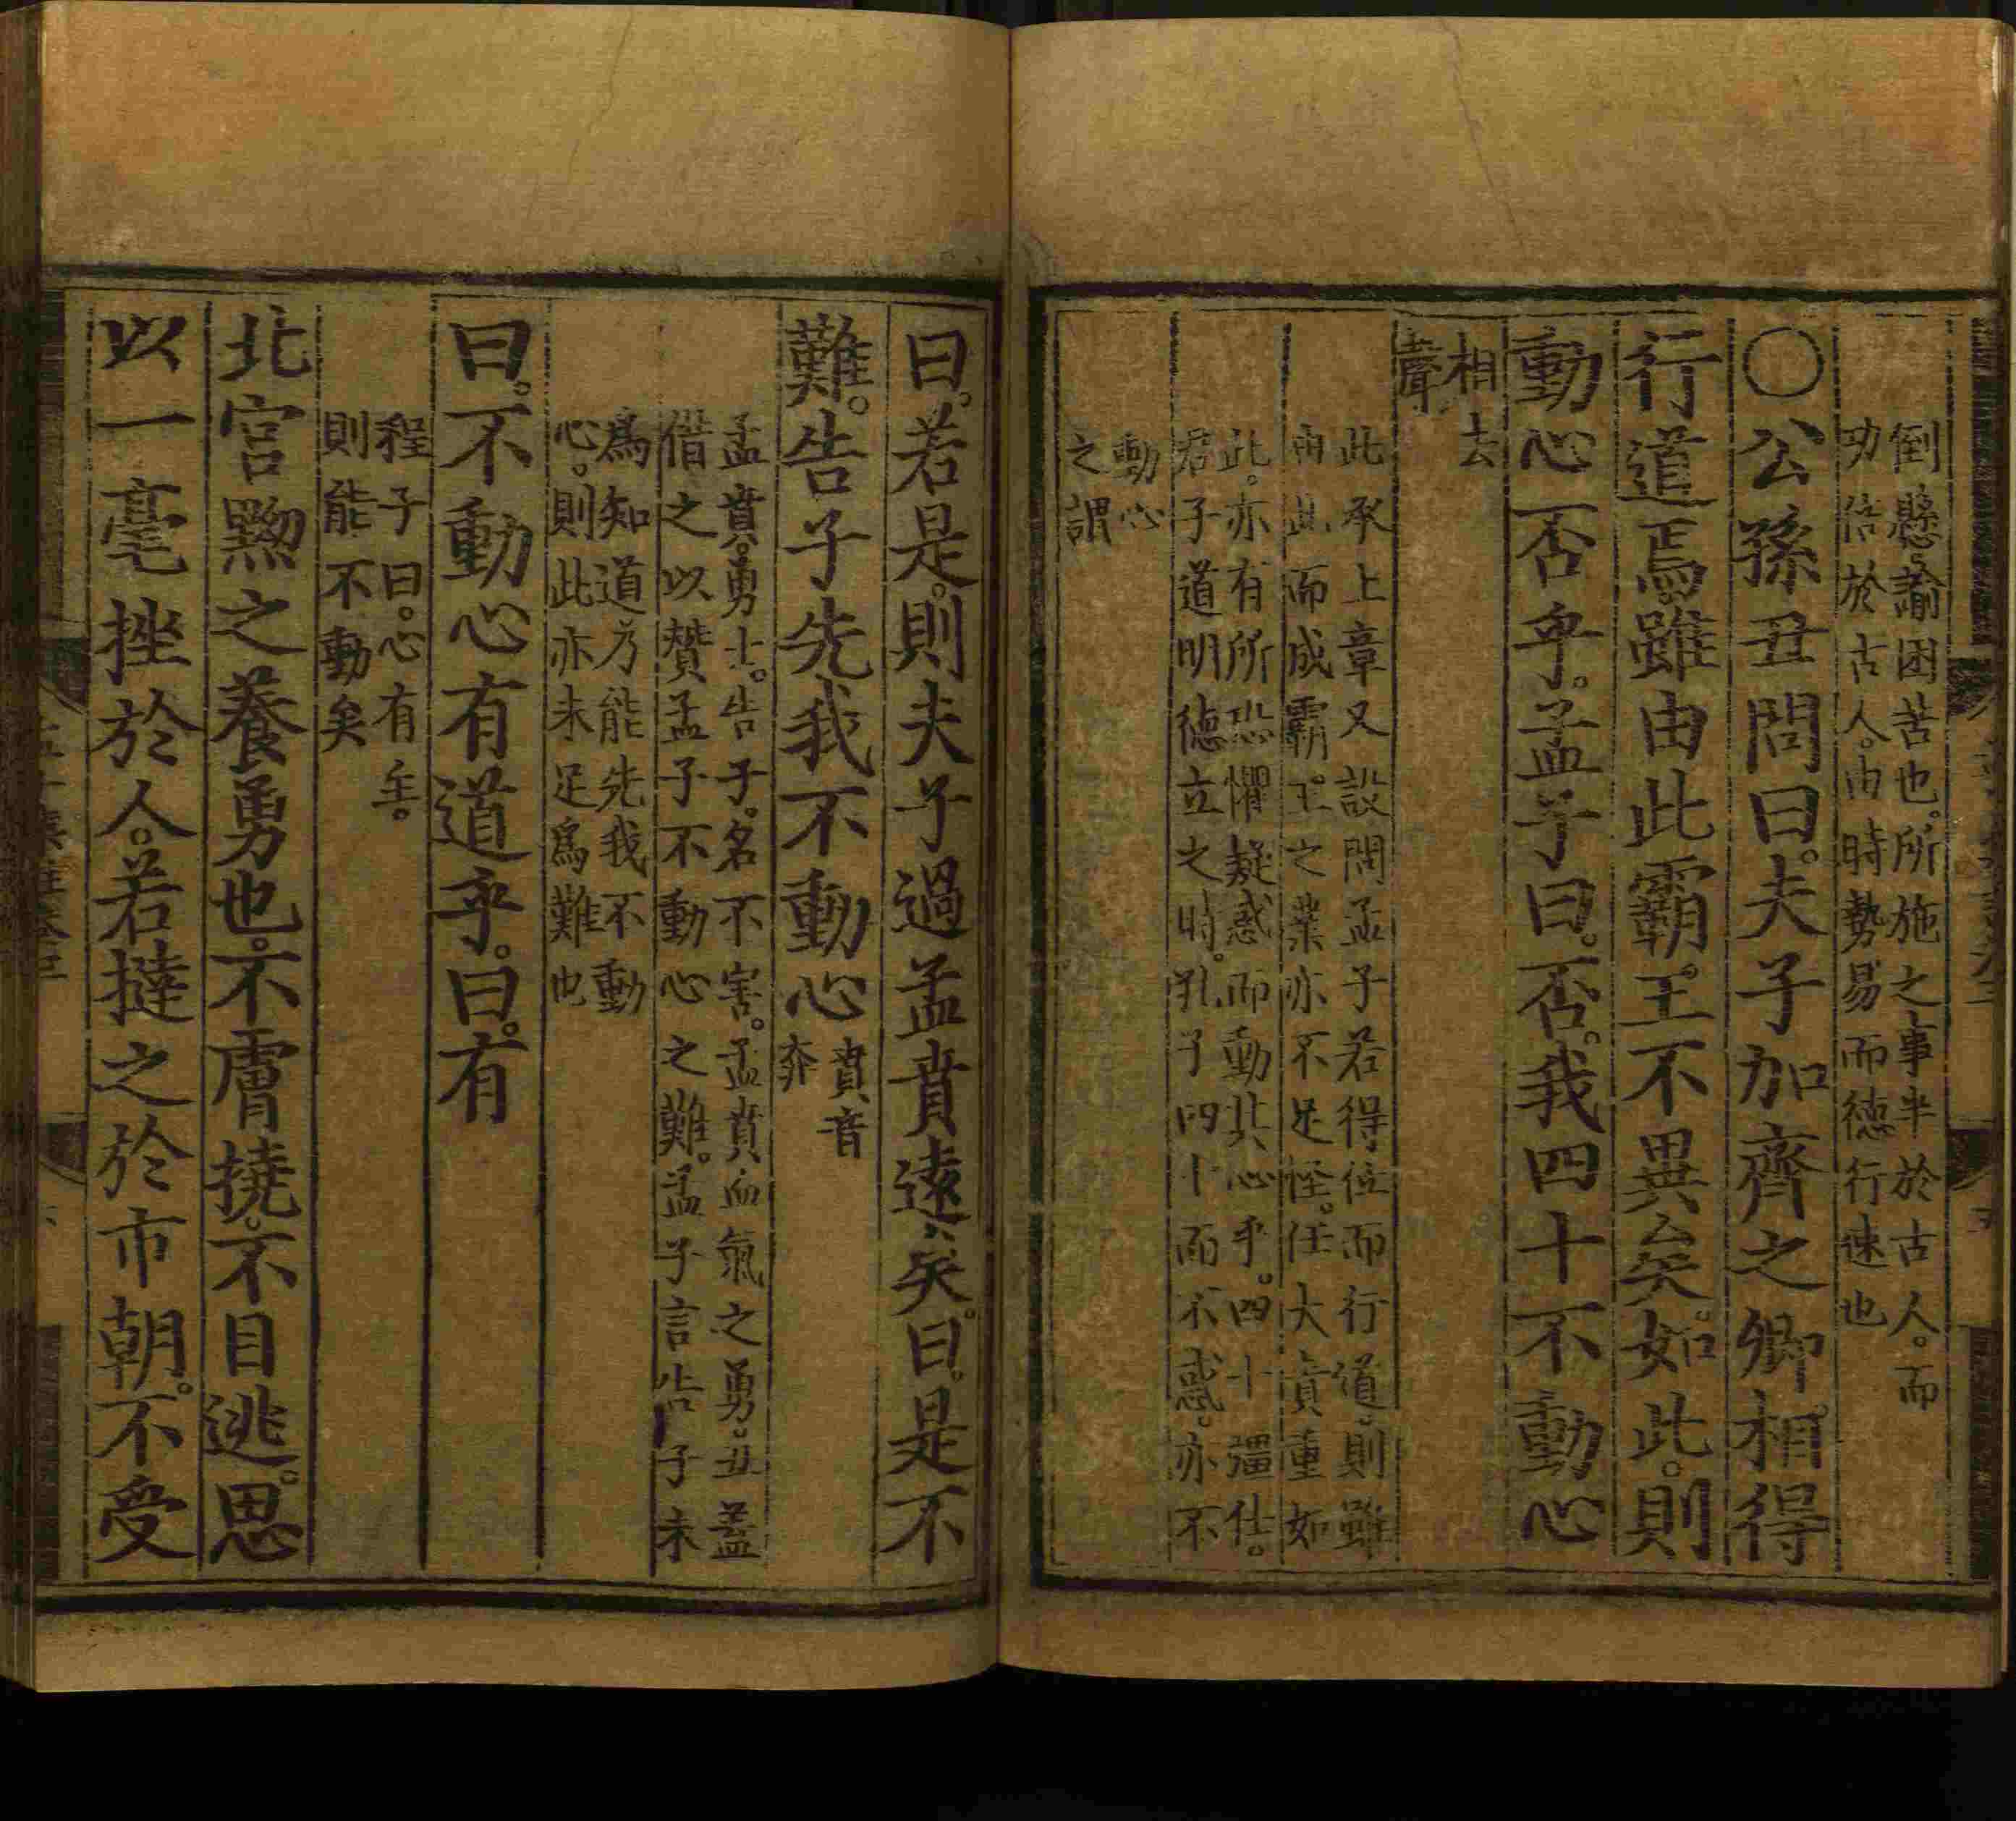 倒懸。諭困苦也。所施之事半於古人。而
功倍於古人。由時勢易而德行速也
〇公孫丑問曰。夫子加齊之卿相。得
行道焉。雖由此霸。王不異矣。如此。則
動心否乎。孟子曰。否。我四十不動心
相去
聲
此承上章又設問孟子若得位而行道。則雖
由此而成霸。王之業亦不足怪。任大責重如
此。亦有所恐懼疑惑而動其心乎。四十彊仕。
君子道明德立之時。孔子四十而不惑。亦不
動心
之謂
曰。若是。則夫子過孟賁遠矣。曰。是不
難。告子先我不動心
賁音
奔
孟賁。勇士。告子。名不害。孟賁血氣之勇。丑蓋
借之以贊孟子不動心之難。孟子言告子未
爲知道乃能先我不動
心。則此亦未足爲難也
曰。不動心有道乎。曰。有
程子曰。心有主。
則能不動矣
北宮黝之養勇也。不膚撓。不目逃。思
以一毫挫於人。若撻之於市朝。不受